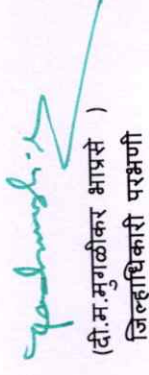 (दी.म.मुगळीकर भाप्रसे )
जिल्हाधिकारी परभणी